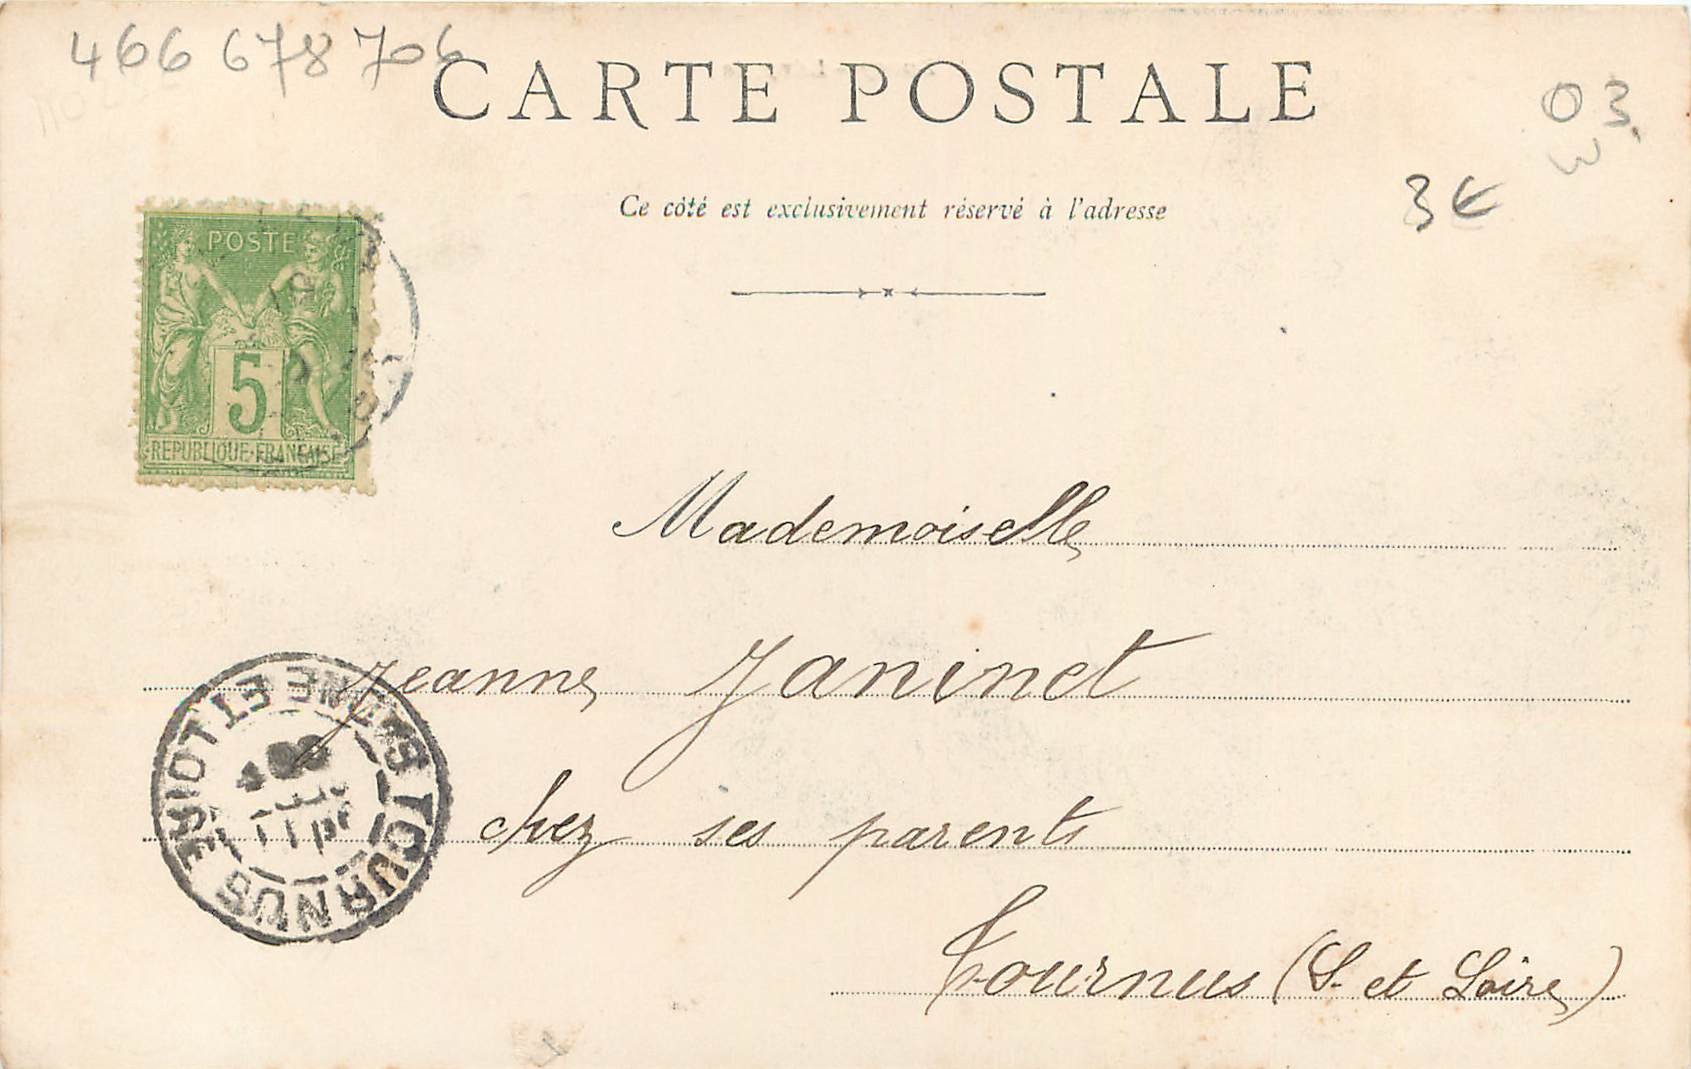 466 678 706
CARTE POSTALE
03
3
3€
Ce côté est exclusivement réservé à l'adresse
POSTE
5
REPUBLIQUE FRANÇAISE
Mademoiselle
Jeanne Janinet
chez ses parents
Tournus (S. et Loire)
TOURNUS
SAONE ET LOIRE